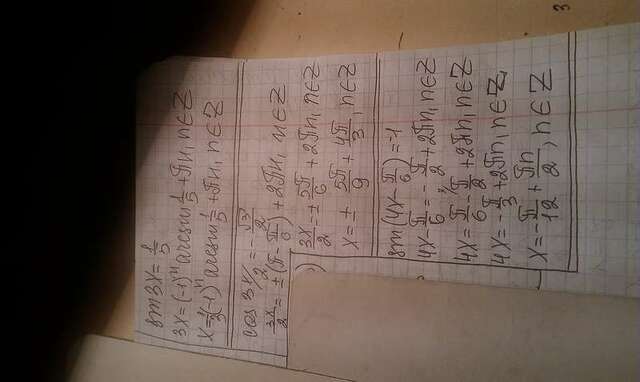 sin3x=1/5
3x=(-1)ⁿ arcsin 1/5 +πn, n∈Z
x=1/3(-1)ⁿ arcsin 1/5 +πn, n∈Z
cos 3x/2 = -√3/2
3x/2 = ±(π-π/6)+2πn, n∈Z
3x/2 = ± 5π/6 + 2πn, n∈Z
x = ± 5π/9 + 4πn/3, n∈Z
sin(4x-π/6)=-1
4x-π/6=-π/2+2πn, n∈Z
4x=π/6-π/2+2πn, n∈Z
4x=-π/3+2πn, n∈Z
x=-π/12+πn/2, n∈Z
3